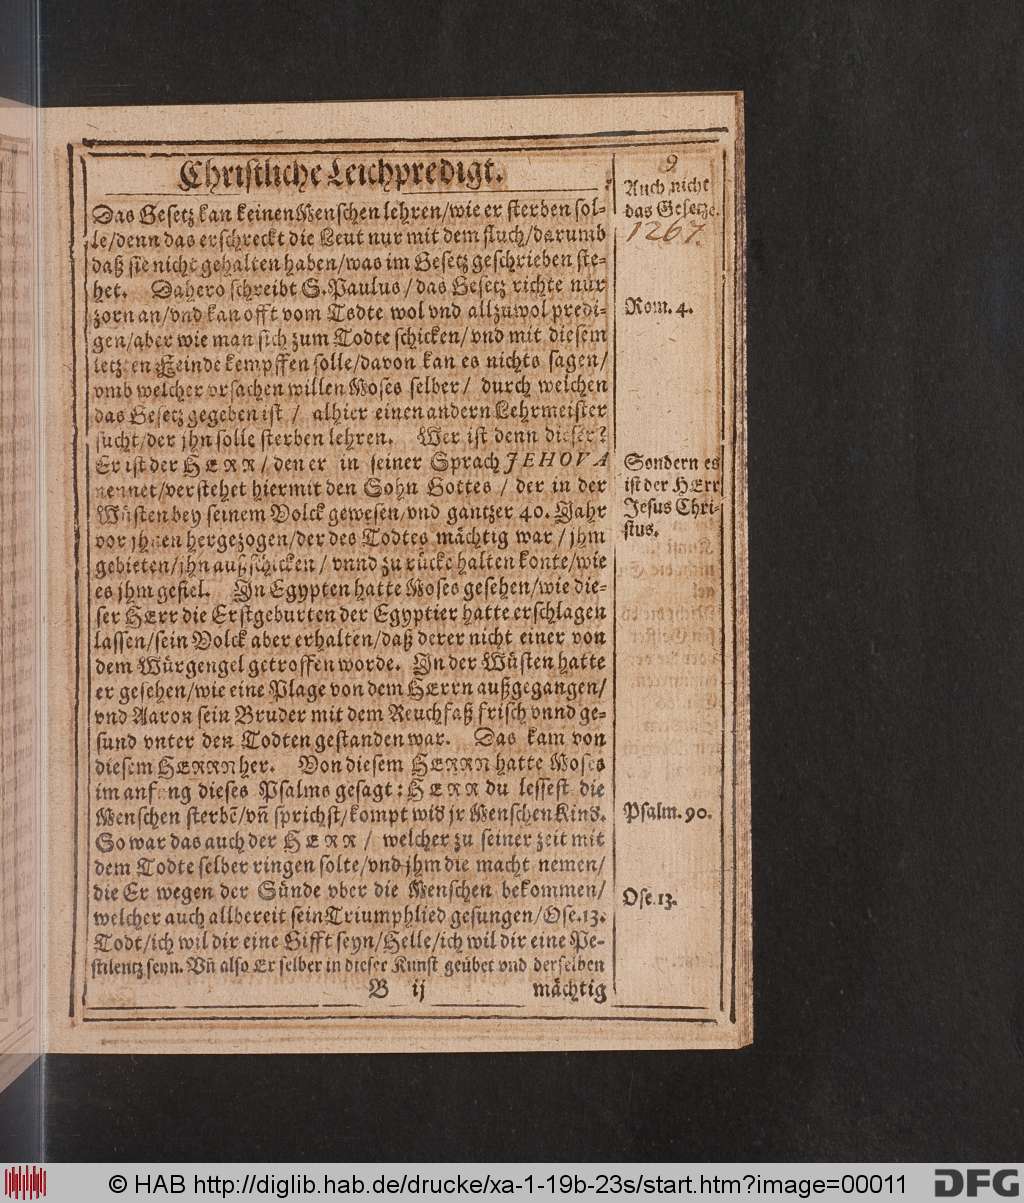 Christliche Leichpredigt.
9
Auch nicht
das Gesetze.
1267.
Das Gesetz kan keinen Menschen lehren/wie er sterben sol-
le/denn das erschreckt die Leut nur mit dem fluch/darumb
daß sie nicht gehalten haben/was im Gesetz geschrieben ste-
het. Dahero schreibt S. Paulus/das Gesetz richte nur
zorn an/vnd kan offt vom Todte wol vnd allzuwol predi-
Rom. 4.
gen/aber wie man sich zum Todte schicken/vnd mit diesem
letzten Feinde kempffen solle/davon kan es nichts sagen/
vmb welcher vrsachen willen Moses selber/ durch welchen
das Gesetz gegeben ist/ alhier einen andern Lehrmeister
sucht/der jhn solle sterben lehren. Wer ist denn dieser?
Er ist der HERR/den er in seiner Sprach JEHOVA
nennet/verstehet hiermit den Sohn Gottes/ der in der
Wüsten bey seinem Volck gewesen/vnd gantzer 40. Jahr
vor jhnen hergezogen/der des Todtes mächtig war/jhm
Sondern es
ist der HErr
Jesus Chri-
stus.
gebieten/jhn außschicken/ vnnd zu rücke halten konte/wie
es jhm gefiel. In Egypten hatte Moses gesehen/wie die-
ser HErr die Erstgeburten der Egyptier hatte erschlagen
lassen/sein Volck aber erhalten/daß derer nicht einer von
dem Würgengel getroffen worde. In der Wüsten hatte
er gesehen/wie eine Plage von dem HErrn außgegangen/
vnd Aaron sein Bruder mit dem Reuchfaß frisch vnnd ge-
sund vnter den Todten gestanden war. Das kam von
diesem HERRN her. Von diesem HERRN hatte Moses
im anfang dieses Psalms gesagt: HERR du lessest die
Menschen sterbē/vn̄ sprichst/kompt wid̕ jr Menschen Kind̕.
Psalm. 90.
So war das auch der HERR/ welcher zu seiner zeit mit
dem Todte selber ringen solte/vnd jhm die macht nemen/
die Er wegen der Sünde vber die Menschen bekommen/
welcher auch allbereit sein Triumphlied gesungen/Ose. 13.
Ose. 13.
Todt/ich wil dir eine Gifft seyn/Helle/ich wil dir eine Pe-
stilentz seyn. Vn̄ also Er selber in dieser Kunst geübet vnd derselben
B ij
mächtig
© HAB http://diglib.hab.de/drucke/xa-1-19b-23s/start.htm?image=00011
DFG